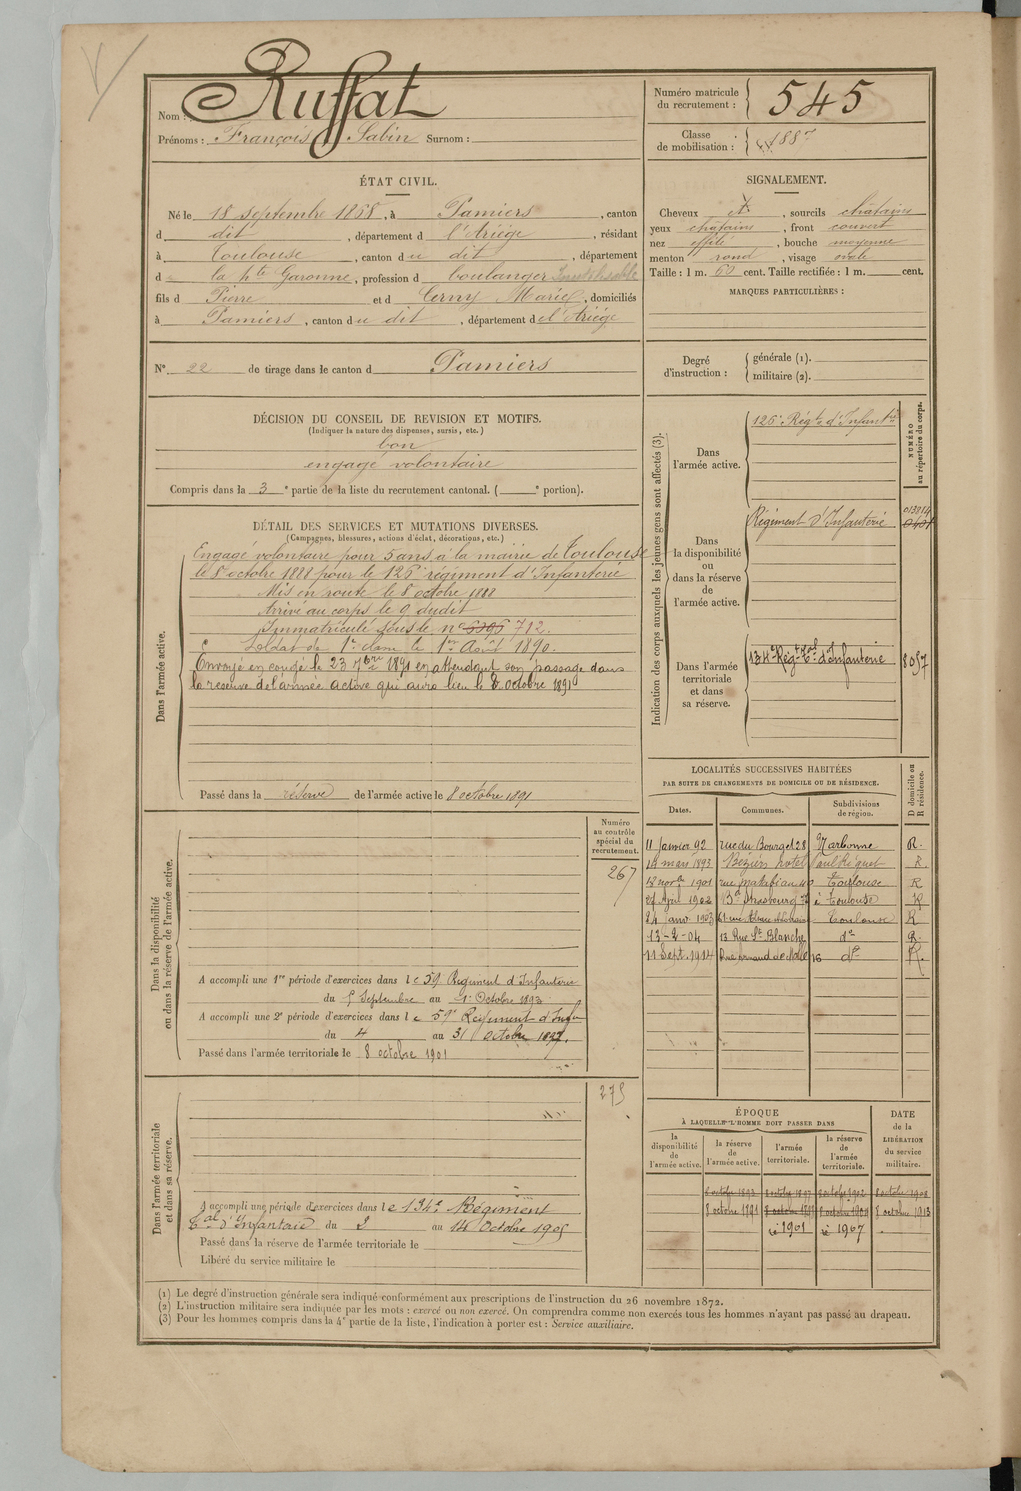 Nom : Ruffat
Prénoms : François Sabin Surnom :
Numéro matricule du recrutement : 545
Classe de mobilisation : 1887
ÉTAT CIVIL.
Né le 18 septembre 1868, à Pamiers, canton
d dit, département d l'Ariège, résidant
à Toulouse, canton du dit, département
d la hte Garonne, profession d boulanger
fils d Pierre et d Cerny Marie, domiciliés
à Pamiers, canton du dit, département de l'Ariège
SIGNALEMENT.
Cheveux , sourcils châtains
yeux châtains, front couvert
nez effilé, bouche moyenne
menton rond, visage ovale
Taille : 1 m. cent. Taille rectifiée : 1 m. cent.
MARQUES PARTICULIÈRES :
N° 22 de tirage dans le canton d Pamiers
Degré d'instruction : générale (1).
militaire (2).
DÉCISION DU CONSEIL DE REVISION ET MOTIFS.
(Indiquer la nature des dispenses, sursis, etc.)
bon
engagé volontaire
Compris dans la 3e partie de la liste du recrutement cantonal. ( e portion).
DÉTAIL DES SERVICES ET MUTATIONS DIVERSES.
(Campagnes, blessures, actions d'éclat, décorations, etc.)
Dans l'armée active.
Engagé volontaire pour 5 ans à la mairie de Toulouse
le 8 octobre 1888 pour le 126e régiment d'Infanterie
Mis en route le 8 octobre 1888
Arrivé au corps le 9 dudit
Immatriculé sous le n° 712.
Soldat de 1re classe le 1er Août 1890.
Envoyé en congé le 23 7bre 1891 en attendant son passage dans
la réserve de l'armée active qui aura lieu le 8 octobre 1891
Passé dans la réserve de l'armée active le 8 octobre 1891
Indication des corps auxquels les jeunes gens sont affectés (3).
NUMÉRO au répertoire du corps.
Dans l'armée active.
126e Régt d'Infanterie
Dans la disponibilité ou dans la réserve de l'armée active.
Régiment d'Infanterie
Dans l'armée territoriale et dans sa réserve.
134e Régt Tal d'Infanterie 8057
LOCALITÉS SUCCESSIVES HABITÉES
PAR SUITE DE CHANGEMENTS DE DOMICILE OU DE RÉSIDENCE.
Dates. Communes. Subdivisions de région. D domicile ou R résidence.
11 Janvier 92 rue du Bourget 28 Narbonne R.
mars 1893 Béziers hotel Paul Riquet R.
12 novb 1901 rue Matabiau 40 Toulouse R
27 Avril 1902 Bd Strasbourg à Toulouse R
24 Janv. 1903 Toulouse R
13-2-04 13 Rue St Blanche do R.
11 Sept. 1914 16 do R.
Dans la disponibilité ou dans la réserve de l'armée active.
Numéro au contrôle spécial du recrutement.
267
A accompli une 1re période d'exercices dans le 59e Régiment d'Infanterie
du 5 Septembre au 1er Octobre 1893
A accompli une 2e période d'exercices dans le 59e Régiment d'Infie
du 4 au 31 Octobre 1897.
Passé dans l'armée territoriale le 8 octobre 1901
Dans l'armée territoriale et dans sa réserve.
275
A accompli une période d'exercices dans le 134e Régiment
Tal d'Infanterie du 2 au 14 Octobre 1905
Passé dans la réserve de l'armée territoriale le
Libéré du service militaire le
ÉPOQUE
À LAQUELLE L'HOMME DOIT PASSER DANS
la disponibilité de l'armée active. la réserve de l'armée active. l'armée territoriale. la réserve de l'armée territoriale.
DATE de la LIBÉRATION du service militaire.
8 octobre 1893 8 octobre 1897 8 octobre 1902 8 octobre 1908
8 octobre 1891 8 octobre 8 octobre 8 octobre 1913
1901 1907
(1) Le degré d'instruction générale sera indiqué conformément aux prescriptions de l'instruction du 26 novembre 1872.
(2) L'instruction militaire sera indiquée par les mots : exercé ou non exercé. On comprendra comme non exercés tous les hommes n'ayant pas passé au drapeau.
(3) Pour les hommes compris dans la 4e partie de la liste, l'indication à porter est : Service auxiliaire.